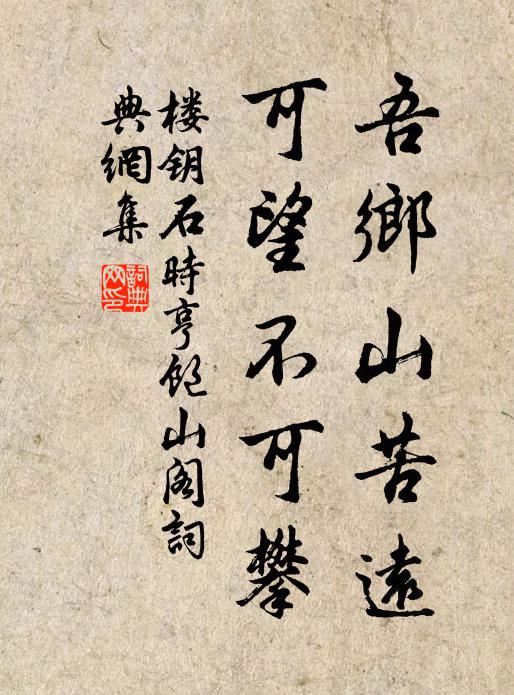 吾鄉山苦遠
可望不可攀
楼钥石時亨飽山阁詞
典網集
詞典網印